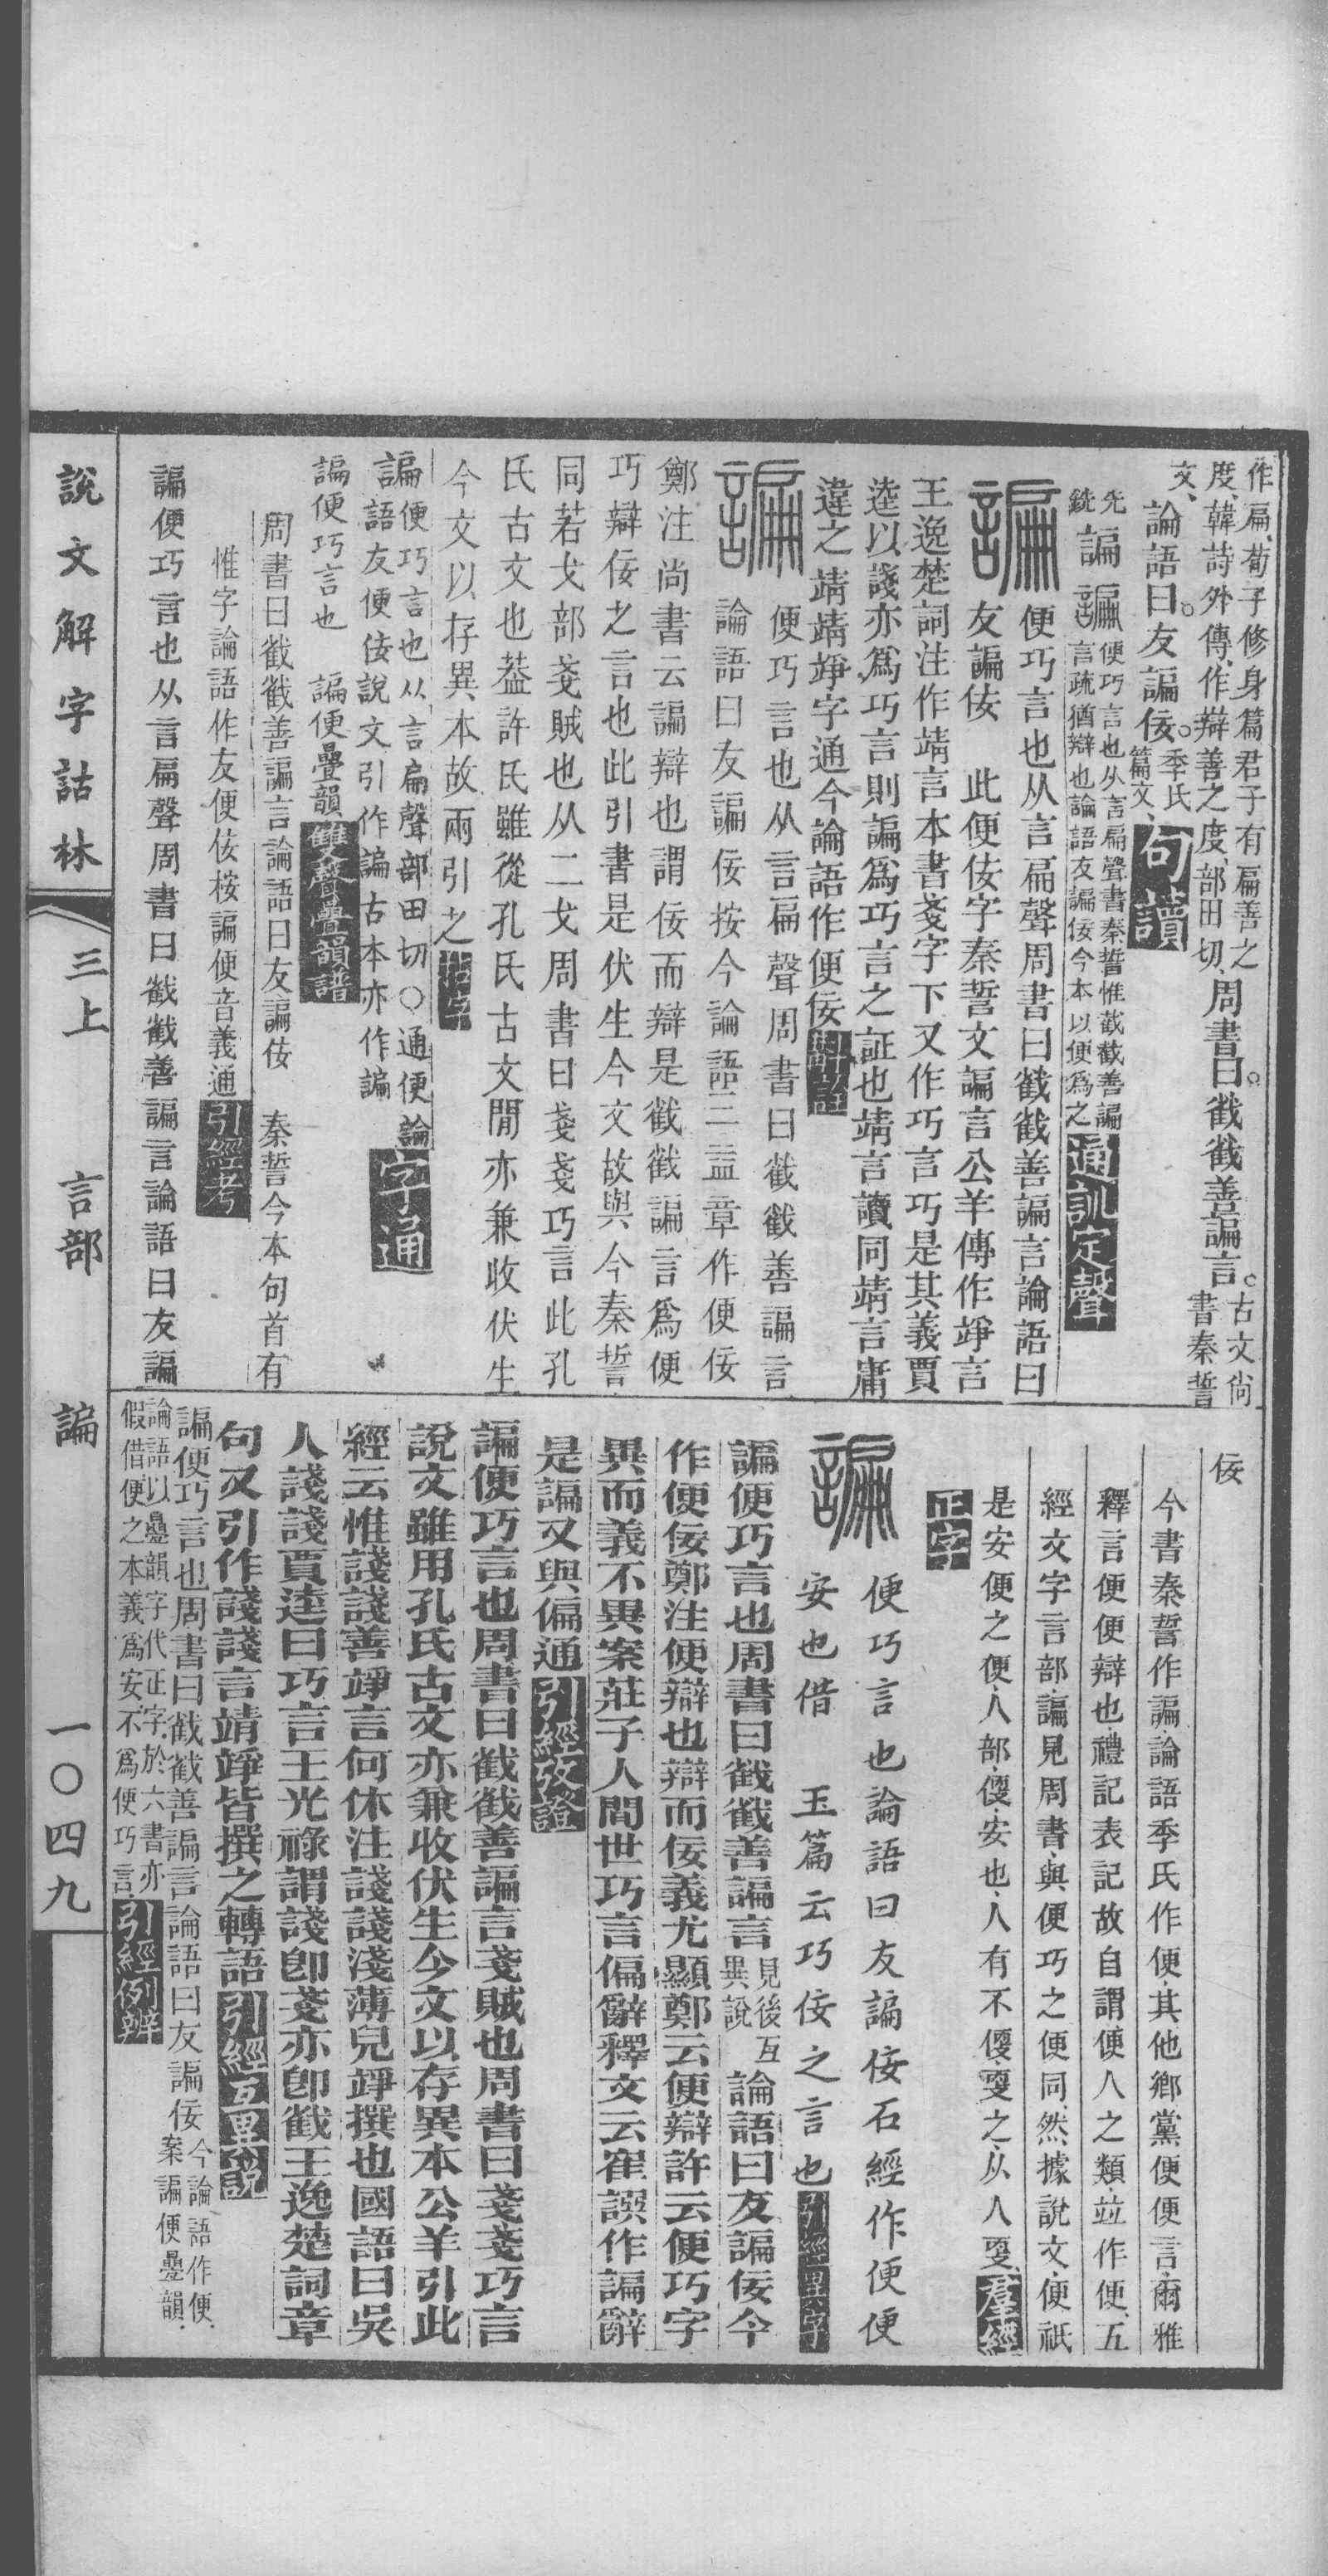 作扁、荀子修身篇君子有扁善之
度、韓詩外傳、作辯善之度、部田切、周書曰。𢧵𢧵善諞言。古文尚書秦誓
文、論語曰。友諞佞。季氏篇文、句讀
先銑 諞 便巧言也从言扁聲書秦誓惟𢧵𢧵善諞
言疏猶辯也論語友諞佞今本以便爲之 通訓定聲
便巧言也从言扁聲周書曰𢧵𢧵善諞言論語曰
友諞佞 此便佞字秦誓文諞言公羊傳作竫言
王逸楚詞注作靖言本書戔字下又作巧言巧是其義賈
逵以諓亦爲巧言則諞爲巧言之証也靖言讀同靖言庸
違之靖靖竫字通今論語作便佞
便巧言也从言扁聲周書曰𢧵𢧵善諞言
論語曰友諞佞按今論語三益章作便佞
鄭注尚書云諞辯也謂佞而辯是𢧵𢧵諞言爲便
巧辯佞之言也此引書是伏生今文故與今秦誓
同若戈部戔賊也从二戈周書曰戔戔巧言此孔
氏古文也葢許氏雖從孔氏古文閒亦兼收伏生
今文以存異本故兩引之
諞便巧言也从言扁聲部田切○通便論
語友便佞說文引作諞古本亦作諞 字通
諞便巧言也 諞便疊韻 雙聲疊韻譜
周書曰𢧵𢧵善諞言論語曰友諞佞 秦誓今本句首有
惟字論語作友便佞桉諞便音義通 引經考
諞便巧言也从言扁聲周書曰𢧵𢧵善諞言論語曰友諞
佞
今書秦誓作諞、論語季氏作便、其他鄉黨便便言、爾雅
釋言便便辯也、禮記表記故自謂便人之類、竝作便、五
經文字言部、諞見周書、與便巧之便同、然據說文、便祇
是安便之便、人部、便、安也、人有不便、更之、从人更、羣經
正字
便巧言也論語曰友諞佞石經作便便
安也借 玉篇云巧佞之言也 引經異字
諞便巧言也周書曰𢧵𢧵善諞言 見後互異說 論語曰友諞佞今
作便佞鄭注便辯也辯而佞義尤顯鄭云便辯許云便巧字
異而義不異案莊子人間世巧言偏辭釋文云崔譔作諞辭
是諞又與偏通 引經攷證
諞便巧言也周書曰𢧵𢧵善諞言戔賊也周書曰戔戔巧言
說文雖用孔氏古文亦兼收伏生今文以存異本公羊引此
經云惟諓諓善竫言何休注諓諓淺薄皃竫撰也國語曰吳
人諓諓賈逵曰巧言王光祿謂諓卽戔亦卽𢧵王逸楚詞章
句又引作諓諓言靖竫皆撰之轉語 引經互異說
諞便巧言也周書曰𢧵𢧵善諞言論語曰友諞佞 今論語作便、案諞便疊韻、
論語以疊韻字代正字、於六書亦
假借便之本義爲安、不爲便巧言、引經例辨
說文解字詁林 三上 言部 諞 一〇四九